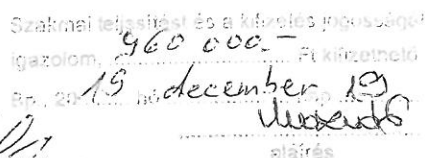 Szakmai teljesítést és a kifizetés jogosságát
igazolom, 960 000.- Ft kifizethető
Bp., 2019 december 19
aláírás